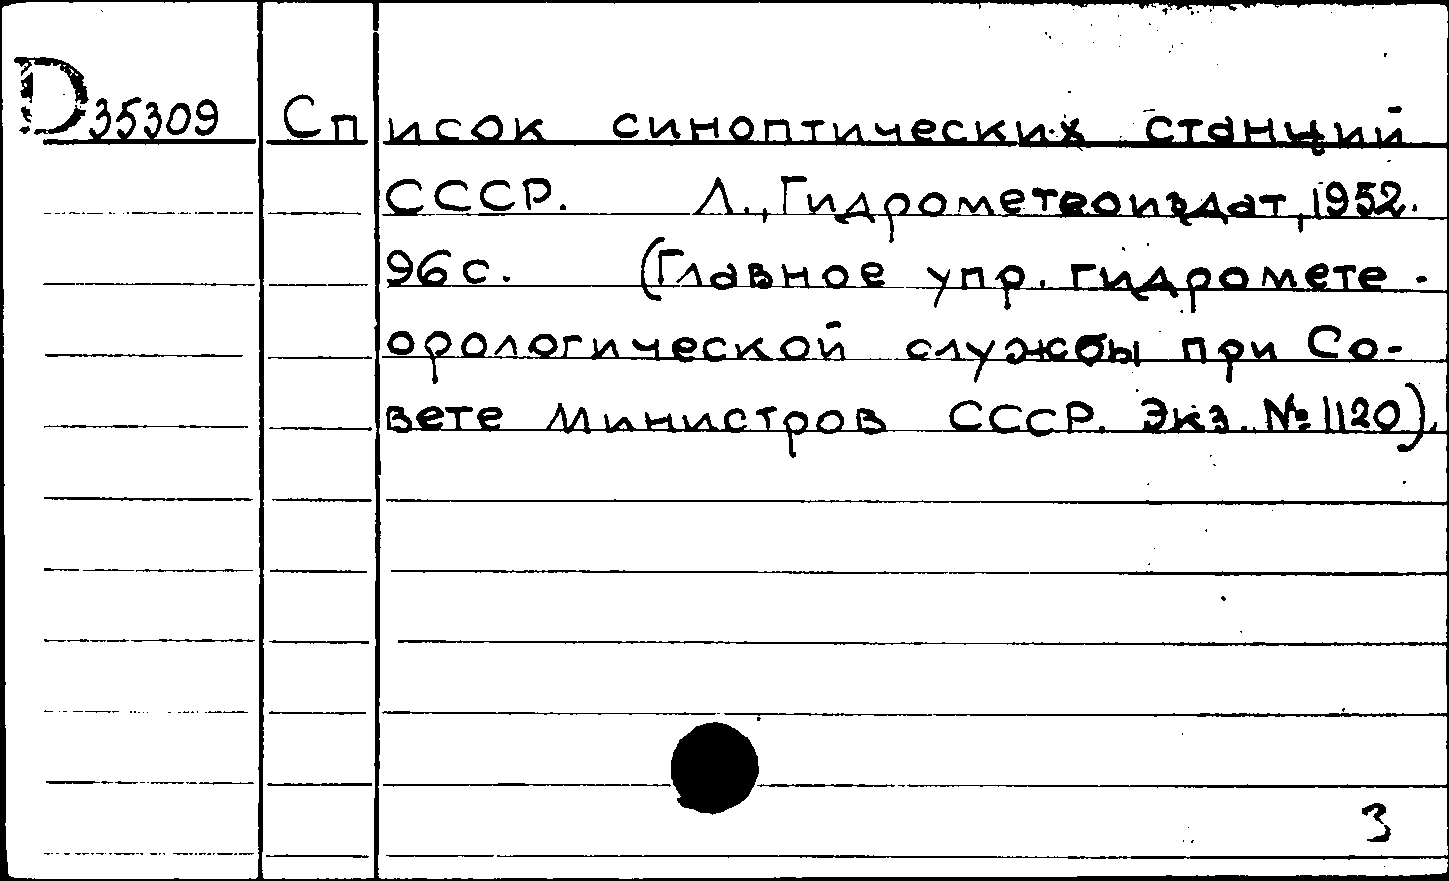 D35309 Список синоптических станций
СССР. Л., Гидрометеоиздат, 1952.
96с. (Главное упр. гидромете-
орологической службы при Со-
вете Министров СССР. Экз. № 1120).
3